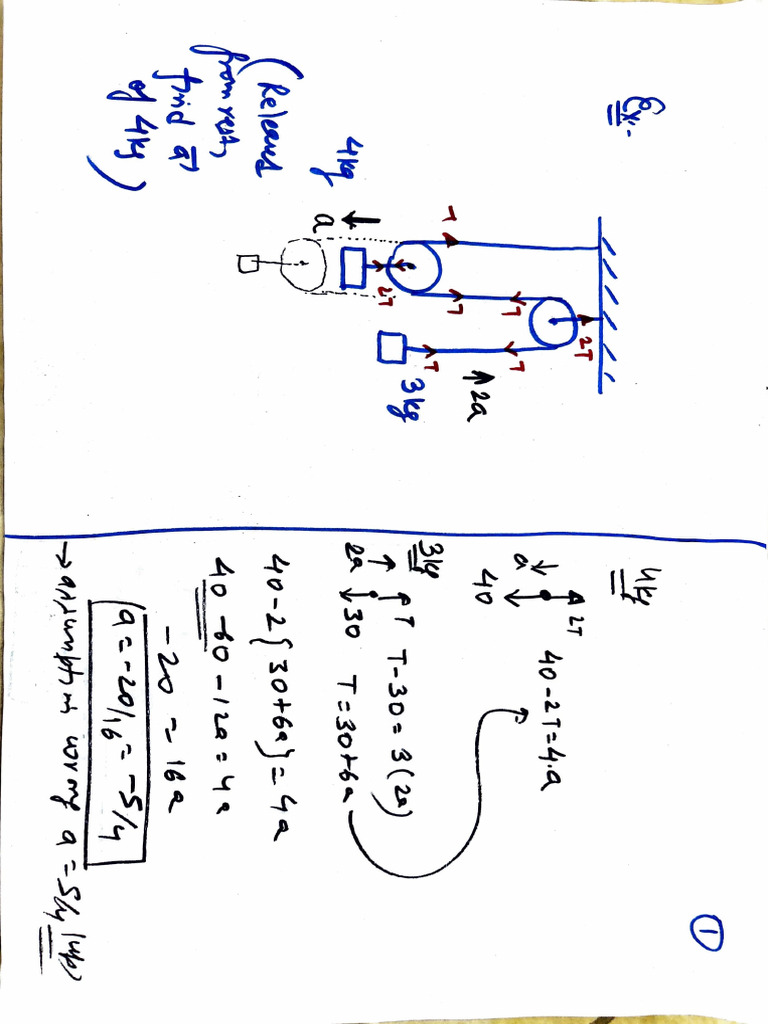 Ex:-
T
T
T
T
T
2T
2T
2a
4kg
a
3kg
(Released
from rest,
find a⃗
of 4kg)
①
4kg
2T
a
40
40-2T=4.a
3kg
T
2a
30
T-30=3(2a)
T=30+6a
40-2{30+6a}=4a
40-60-12a=4a
-20=16a
a=-20/16=-5/4
→ assumption wrong a=5/4 (up)